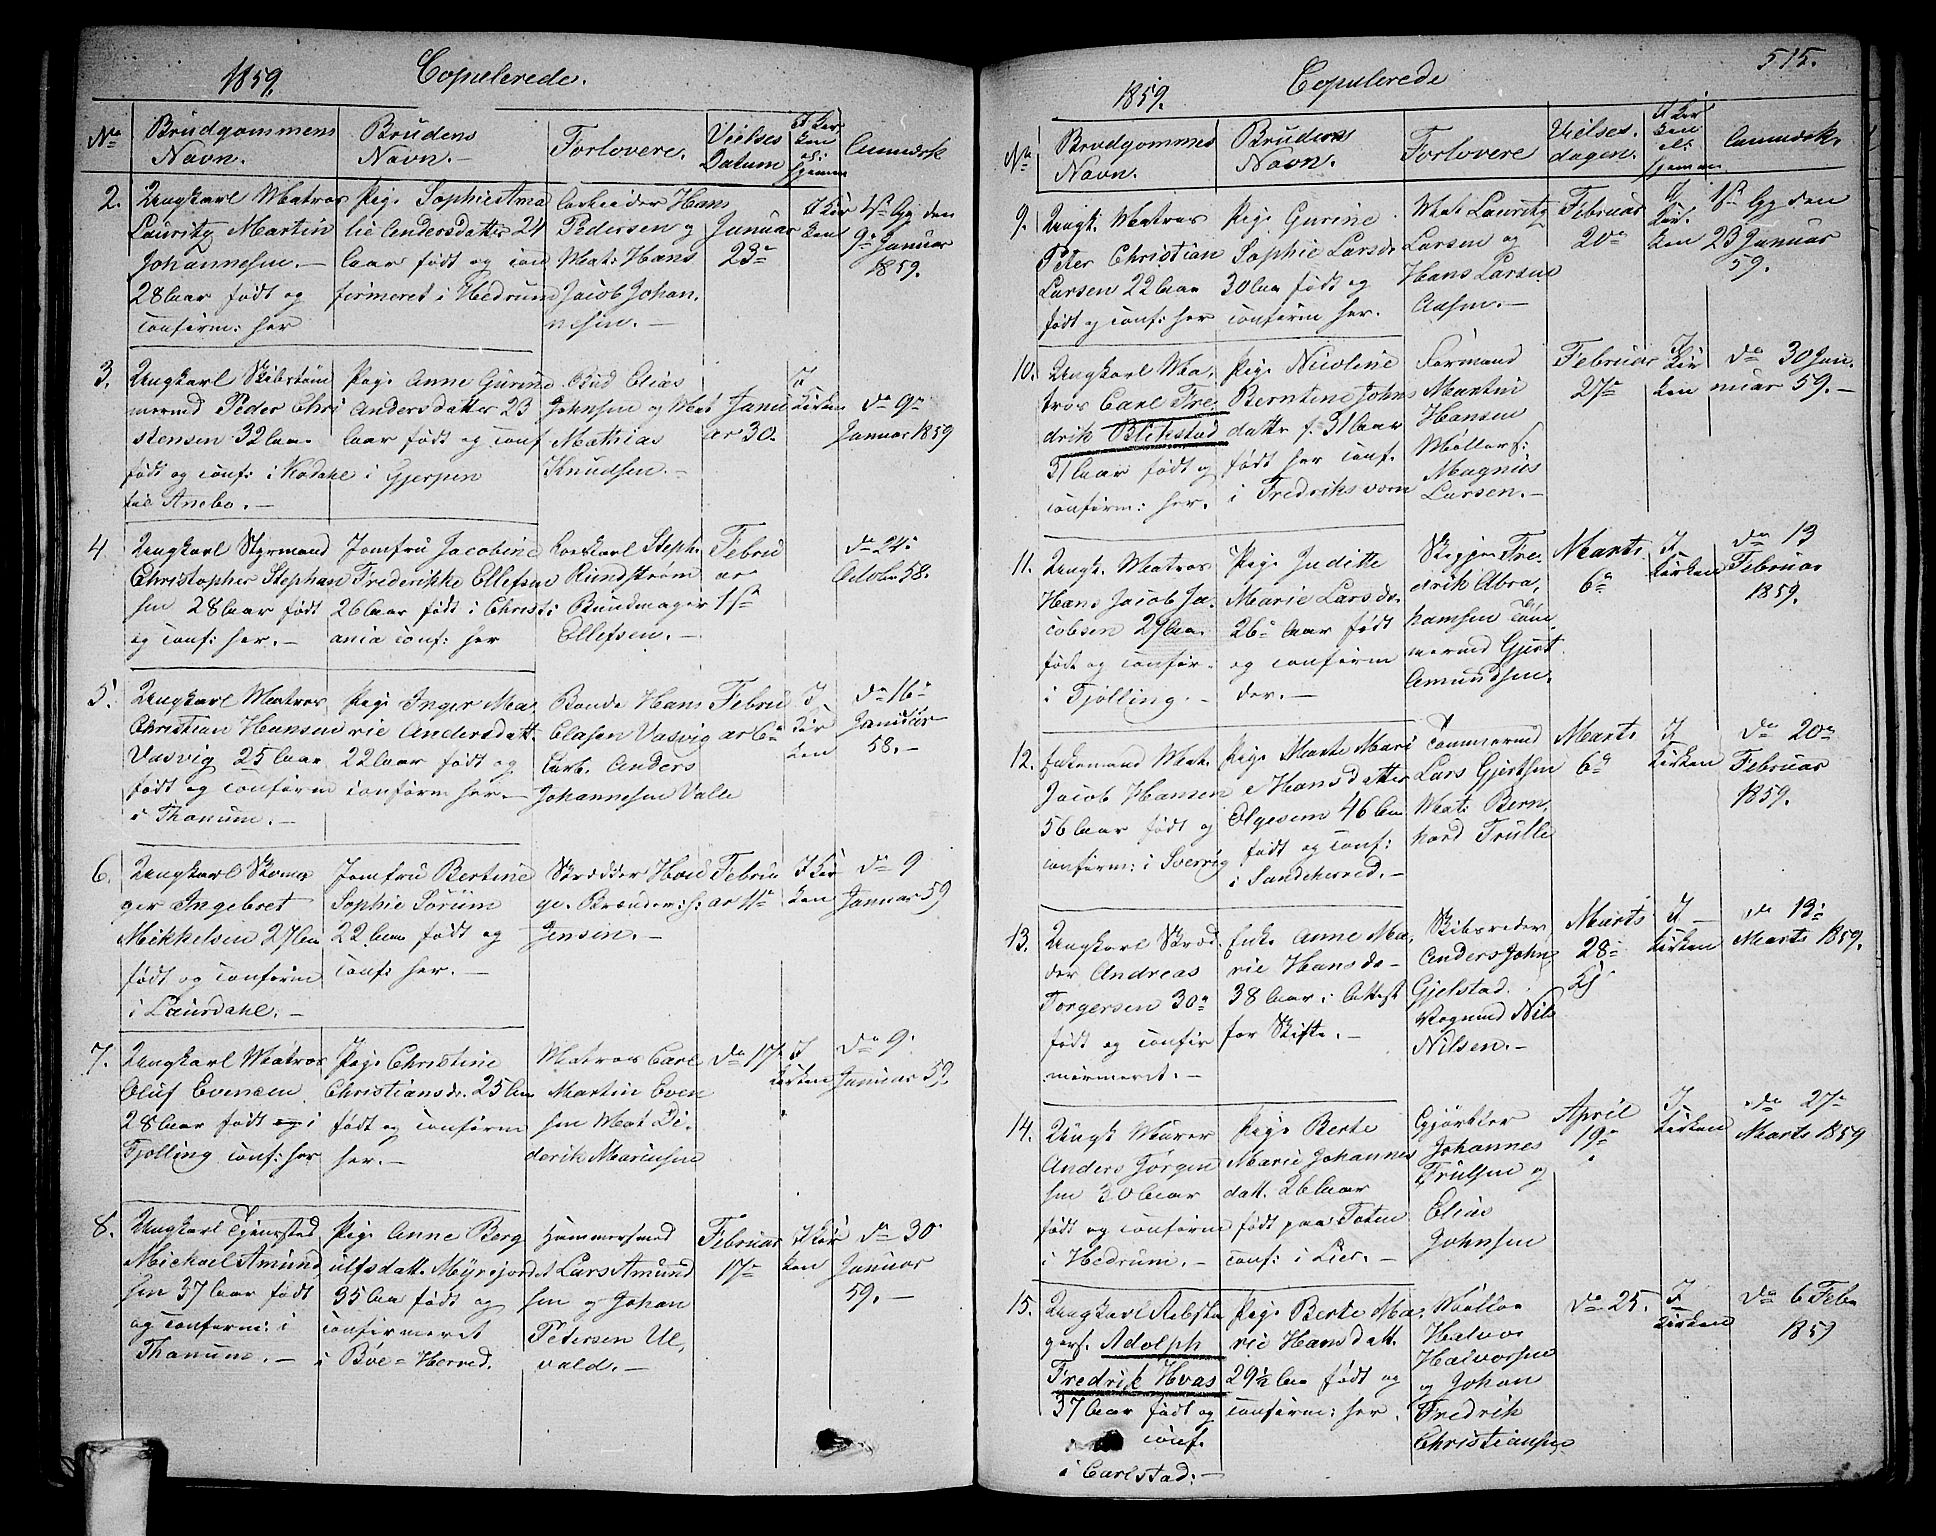 1859. Copulerede.
No
Brudgommens Navn.
Brudens Navn.
Forlovere.
Vielses Datum
I Kirken el. hjemme
Anmærk
2.
Ungkarl Matros
Lauritz Martin
Johannesen.
28 Aar født og
confirm: her
Pige Sophie Ama
lie Andersdatter 24
Aar født og con
firmeret i Hedrum
Arbeider Hans
Pedersen og
Mat: Hans
Jacob Johan
nesen.
Januar
23de
I Kir
ken
1ste Gg den
9de Januar
1859.
3.
Ungkarl Skibstøm
mermd Peder Chri
stensen 32 Aar
født og conf: i Kodahl
til Anebo.
Pige Anne Gurine
Andersdatter 23
Aar født og conf
i Gjerpen
Bud Elias
Johnsen og Mat
Mathias
Knudsen.
Janu
ar 30.
I
Kirken
do 9de
Januar 1859
4
Ungkarl Styrmand
Christopher Stephan
sen 28 Aar født
og conf: her.
Jomfru Jacobine
Frederikke Ellefsen
26 Aar født i Christi
ania conf: her
Steph.
Rundstrøm
Bundmager
Ellefsen.
Febru
ar
1ste
do 24de
Octobr 58.
5.
Ungkarl Matros
Christian Hansen
Vasvig 25 Aar
født og confirm
i Thanum.
Pige Inger Ma
rie Andersdatt.
22 Aar født og
confirm her.
Bonde Hans
Olasen Vasvig
Arb. Anders
Johannesen Valle
Febru
ar 6te
I
Kir
ken
do 16de
Januar
58.
6.
Ungkarl Skoma
ger Ingebret
Mikkelsen 27 Aar
født og confirm
i Laurdahl.
Jomfru Bertine
Sophie Sörum
22 Aar født og
conf: her.
Skrædder Hau
ge. Brænder:
Jensen.
Febru
ar 11te
I Kir
ken
do 9
Januar 59
7.
Ungkarl Matros
Oluf Evensen
28 Aar født og i
Tjølling conf: her
Pige Christine
Christiansd. 25 Aar
født og confirm
her.
Matros Carl
Martin Even
sen Mat Di
derik Mariusen
do 17.
I
Kirken
do 9.
Januar 59.
8.
Ungkarl Tjenested
Michael Amund
sen 37 Aar født
og confirm: i
Thanum.
Pige Anne Berg
ulfsdatt. Myrejord
35 Aar født og
confirmeret
i Böe=Herred.
Hammersmed
Lars Amund
sen og Johan
Petersen Ul,
vald.
Februar
17de
I Kir
ken
do 30
Januar
59.
515.
1859. Copulerede
No
Brudgommens Navn.
Brudens Navn.
Forlovere
Vielses. dagen.
I Kir ken el. hjemme
Anmærk.
9.
Ungk. Matros
Peter Christian
Larsen 22 Aar
født og conf: her
Pige Gurine
Sophie Larsd.
30 Aar født og
confirm her.
Mat Lauritz
Larsen og
Hans Larsen
Aasen.
Februar
20de
I
Kir
ken
1ste Gg den
23 Januar
59.
10.
Ungkarl Ma
tros Carl Fre
drik Blikstad
31 Aar født og
confirm: her.
Pige Nicoline
Berntine Johns
datter f. 31 Aar
født her conf.
i Fredriksværn
Formand
Martin
Hansen
Møllers:
Magnus
Larsen.
Februar
27de
I
Kir
ken
do 30 Jan.
nuar 59.
11.
Ungk. Matros
Hans Jacob Ja
cobsen 29 Aar
født og confir.
i Tjølling.
Pige Juditte
Marie Larsd.
26de Aar født
og confirm
der.
Skipper Fre
drik Abra,
hamsen Töm
mermd Gjert
Amundsen.
Marts
6te
I
Kirken
do 13
Februar
1859.
12.
Enkemand Mat.
Jacob Hansen
56 Aar født og
confirm: i Sverrig
Pige Marte Mari
Hansdatter
Olgesen 46 Aar
født og conf:
i Sandeherred.
Tømmermd
Lars Gjertsen
Mat: Bern,
hard Trulle
Marts
6te
I
Kirken
do 20de
Februar
1859.
13.
Ungkarl Skræd
der Andreas
Torgersen 30de
født og confir
mirmeret.
Enke Anne Ma,
rie Hansd.
38 Aar i Attest
for Skifte.
Skibsreder
Anders John,
Gjelstad.
Vognmd Nils
Nilsen.
Marts
28de
I
Kirken
do 13de
Marts 1859.
14.
Ungk Murer
Anders Jørgen
sen 30 Aar
født og confirm
i Hedrum.
Pige Berte
Marie Johannes
datt. 26 Aar
født paa Toten
conf: i Lier.
Gjørtler
Johannes
Trulsen og
Elias
Johnsen
April
19de
I
Kirken
do 27de
Marts 1859
15.
Ungkarl Rebsla
gers. Adolph
Fredrik Hvas
37 Aar født og
conf.
i Carlstad.
Pige Berte Ma,
rie Hansdatt.
29½ Aar født og
confirm: her.
Halvor
Halvorsen
og Johan
Fredrik
Christiansen
do 25.
I
Kirken
do 6 Febr
1859